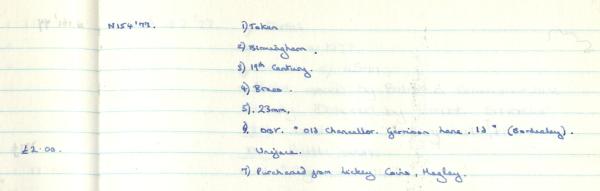 N154'77. 1) Token
2) Birmingham.
3) 19th Century.
4) Brass.
5). 23mm.
6. OBV. "Old Chancellor. Garrison Lane. 1d" (Bordesley).
£2.00. Uniface.
7) Purchased from Lickey Coins, Hagley.